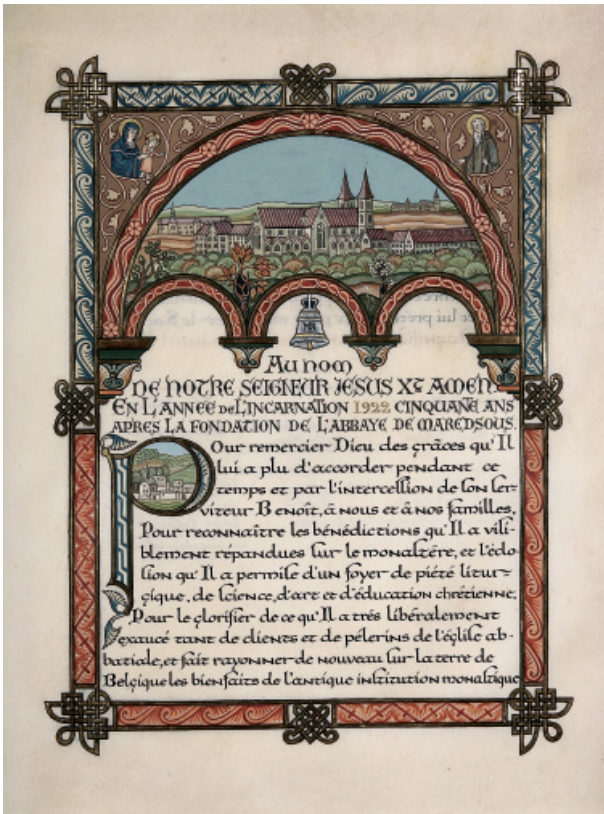 AU NOM
DE NOTRE SEIGNEUR JESUS XT AMEN.
EN L'ANNEE DE L'INCARNATION 1922 CINQUANTE ANS
APRES LA FONDATION DE L'ABBAYE DE MAREDSOUS.
Pour remercier Dieu des grâces qu'Il
lui a plu d'accorder pendant ce
temps et par l'interceſſion de ſon ſer-
viteur Benoît, à nous et à nos familles,
Pour reconnaître les bénédictions qu'Il a viſi-
blement répandues ſur le monaſtére, et l'éclo-
ſion qu'Il a permiſe d'un foyer de piété litur-
gique, de ſcience, d'art et d'éducation chrétienne,
Pour le glorifier de ce qu'Il a trés libéralement
exaucé tant de clients et de pélerins de l'égliſe ab-
batiale, et fait rayonner de nouveau ſur la terre de
Belgique les bienfaits de l'antique inſtitution monaſtique